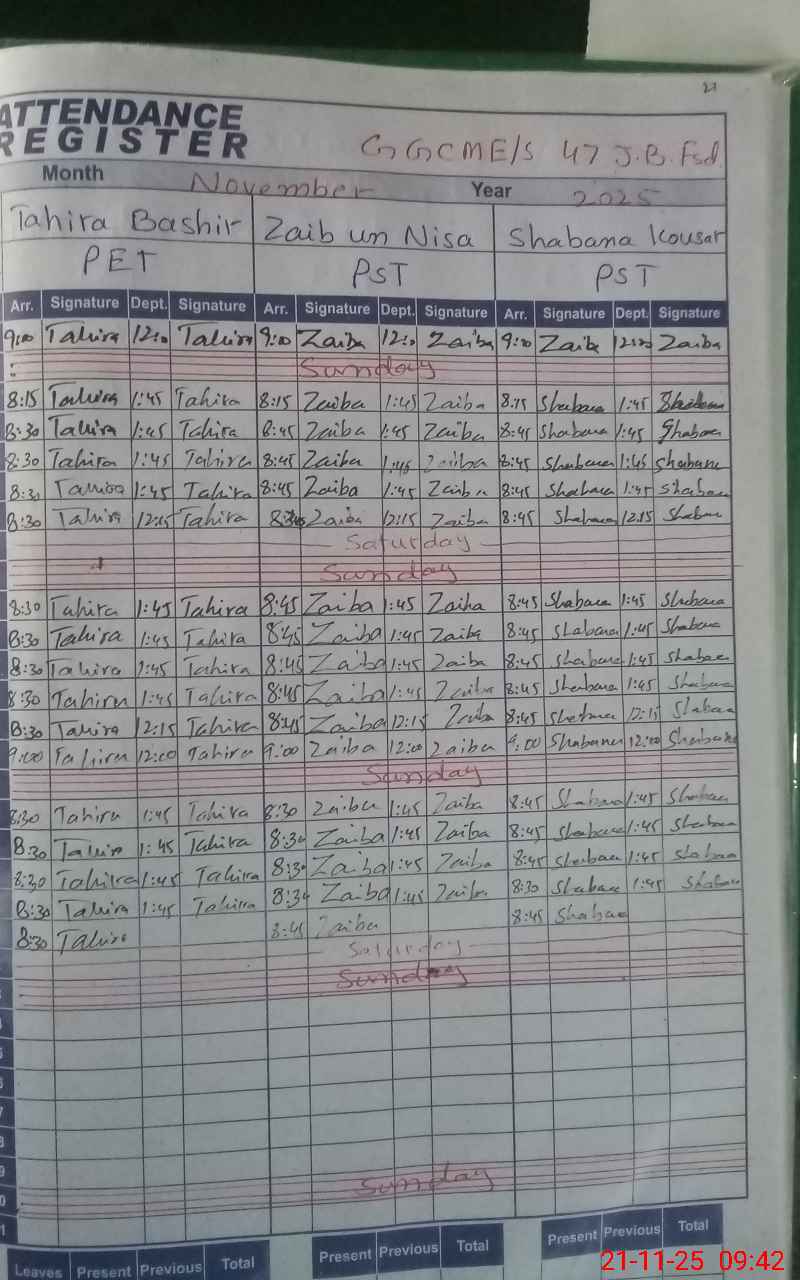 21
ATTENDANCE
REGISTER
G G C M E/S 47 J.B. Fsd
Month November Year 2025
Tahira Bashir Zaib un Nisa Shabana Kousar
PET PST PST
Arr. Signature Dept. Signature Arr. Signature Dept. Signature Arr. Signature Dept. Signature
9:00 Tahira 12:0 Tahira 9:00 Zaiba 12:0 Zaiba 9:00 Zaiba 12:00 Zaiba
Sunday
8:15 Tahira 1:45 Tahira 8:15 Zaiba 1:45 Zaiba 8:15 Shabana 1:45
8:30 Tahira 1:45 Tahira 8:45 Zaiba 1:45 Zaiba 8:45 Shabana 1:45 Shabana
8:30 Tahira 1:45 Tahira 8:45 Zaiba 1:45 Zaiba 8:45 Shabana 1:45 Shabana
8:30 Tahira 1:45 Tahira 8:45 Zaiba 1:45 Zaiba 8:45 Shabana 1:45 Shabana
8:30 Tahira 12:15 Tahira Zaiba 12:15 Zaiba 8:45 Shabana 12:15 Shabana
Saturday
Sunday
8:30 Tahira 1:45 Tahira 8:45 Zaiba 1:45 Zaiba 8:45 Shabana 1:45 Shabana
8:30 Tahira 1:45 Tahira 8:45 Zaiba 1:45 Zaiba 8:45 Shabana 1:45 Shabana
8:30 Tahira 1:45 Tahira 8:45 Zaiba 1:45 Zaiba 8:45 Shabana 1:45 Shabana
8:30 Tahira 1:45 Tahira 8:45 Zaiba 1:45 Zaiba 8:45 Shabana 1:45 Shabana
8:30 Tahira 12:15 Tahira 8:45 Zaiba 12:15 Zaiba 8:45 Shabana 12:15 Shabana
9:00 Tahira 12:00 Tahira 9:00 Zaiba 12:00 Zaiba 9:00 Shabana 12:00 Shabana
Sunday
8:30 Tahira 1:45 Tahira 8:30 Zaiba 1:45 Zaiba 8:45 Shabana 1:45 Shabana
8:30 Tahira 1:45 Tahira 8:30 Zaiba 1:45 Zaiba 8:45 Shabana 1:45 Shabana
8:30 Tahira 1:45 Tahira 8:30 Zaiba 1:45 Zaiba 8:45 Shabana 1:45 Shabana
8:30 Tahira 1:45 Tahira 8:30 Zaiba 1:45 Zaiba 8:30 Shabana 1:45 Shabana
8:30 Tahira 8:45 Zaiba 8:45 Shabana
Saturday
Sunday
Sunday
Leaves Present Previous Total Present Previous Total Present Previous Total
21-11-25 09:42